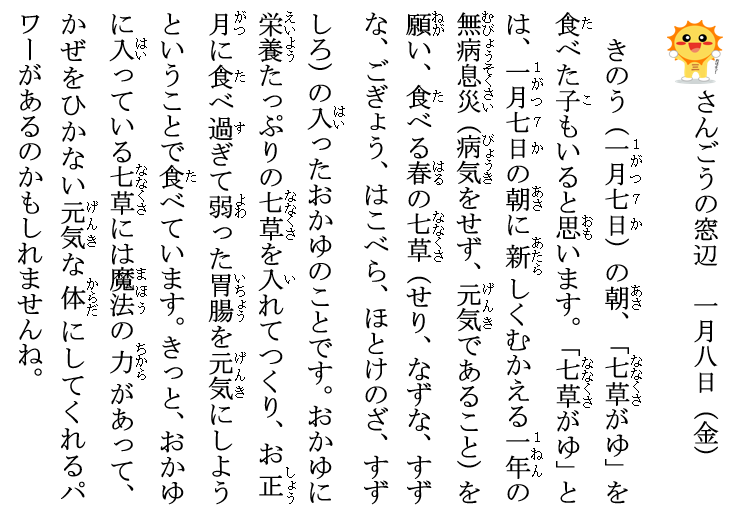 さんごうの窓辺　一月八日（金）
きのう（一月七日）の朝、「七草がゆ」を
食べた子もいると思います。「七草がゆ」と
は、一月七日の朝に新しくむかえる一年の
無病息災（病気をせず、元気であること）を
願い、食べる春の七草（せり、なずな、すず
な、ごぎょう、はこべら、ほとけのざ、すず
しろ）の入ったおかゆのことです。おかゆに
栄養たっぷりの七草を入れてつくり、お正
月に食べ過ぎて弱った胃腸を元気にしよう
ということで食べています。きっと、おかゆ
に入っている七草には魔法の力があって、
かぜをひかない元気な体にしてくれるパ
ワーがあるのかもしれませんね。